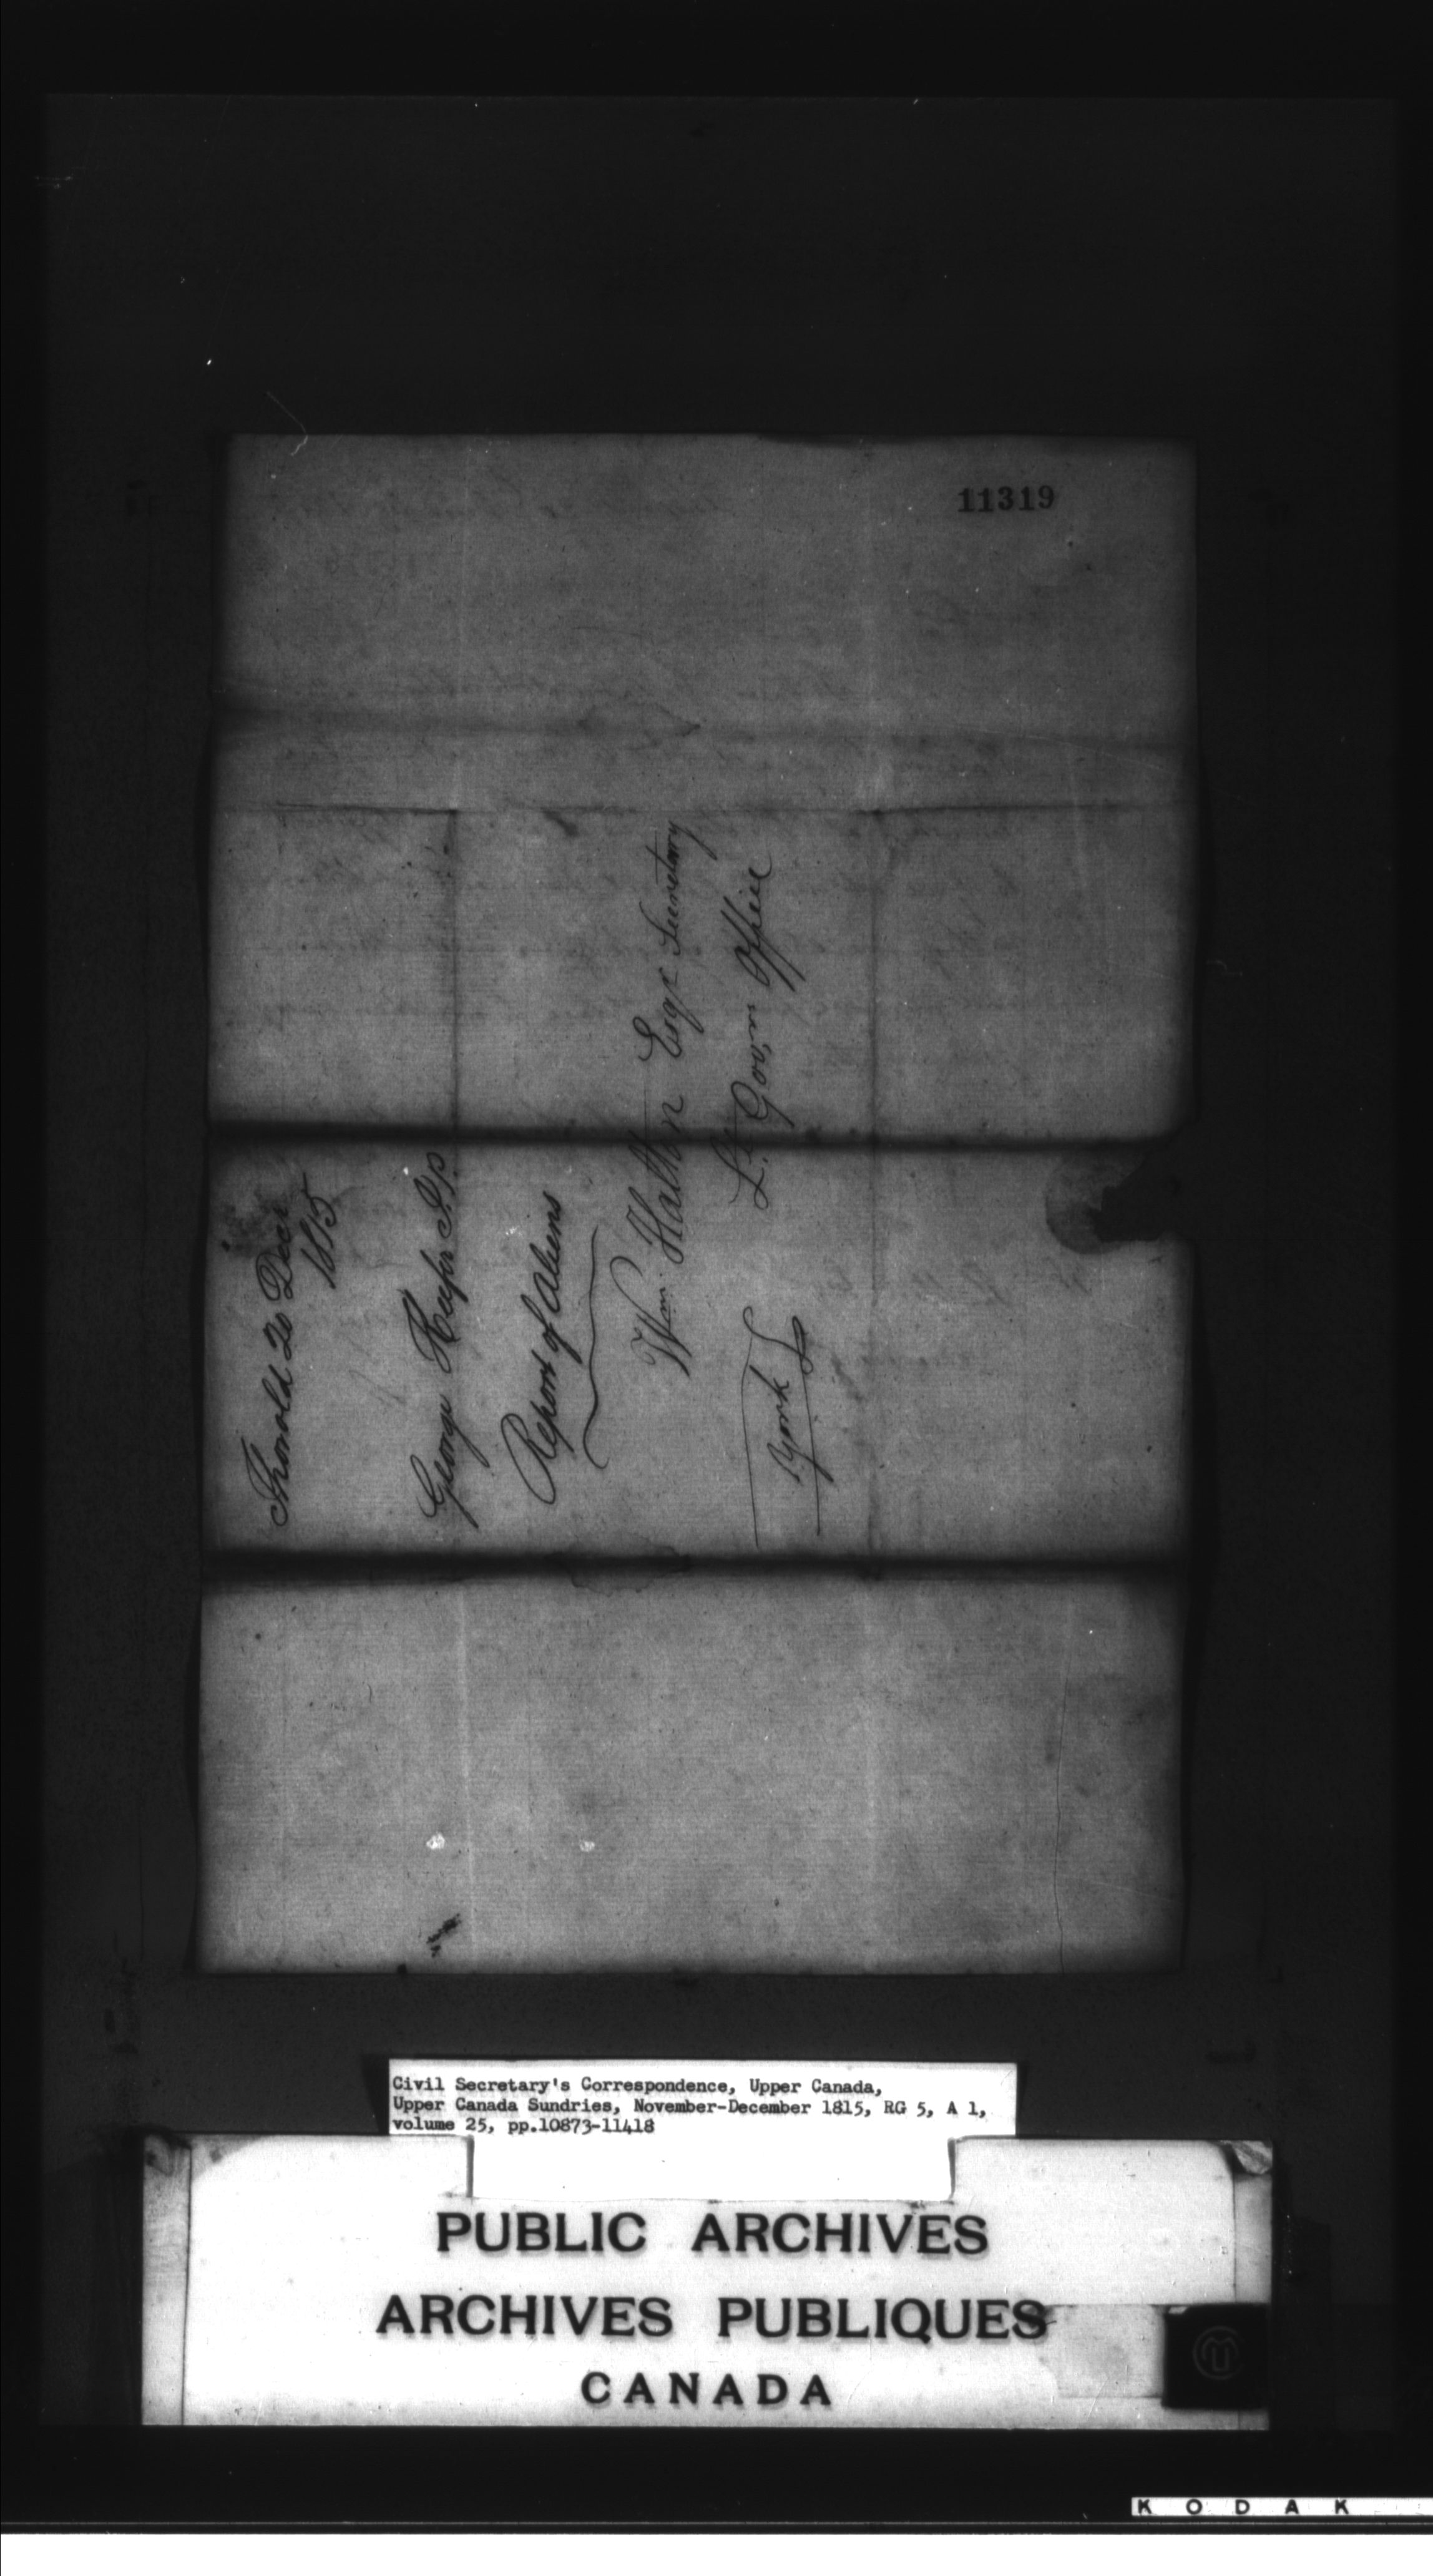 11319
Thorold 20 Decr
1815
George Keefer J.P.
Report of Aliens
Wm. Halton Esqr Secretary
Lt. Govrs Office
York
Civil Secretary's Correspondence, Upper Canada,
Upper Canada Sundries, November-December 1815, RG 5, A 1,
volume 25, pp.10873-11418
PUBLIC ARCHIVES
ARCHIVES PUBLIQUES
CANADA
KODAK